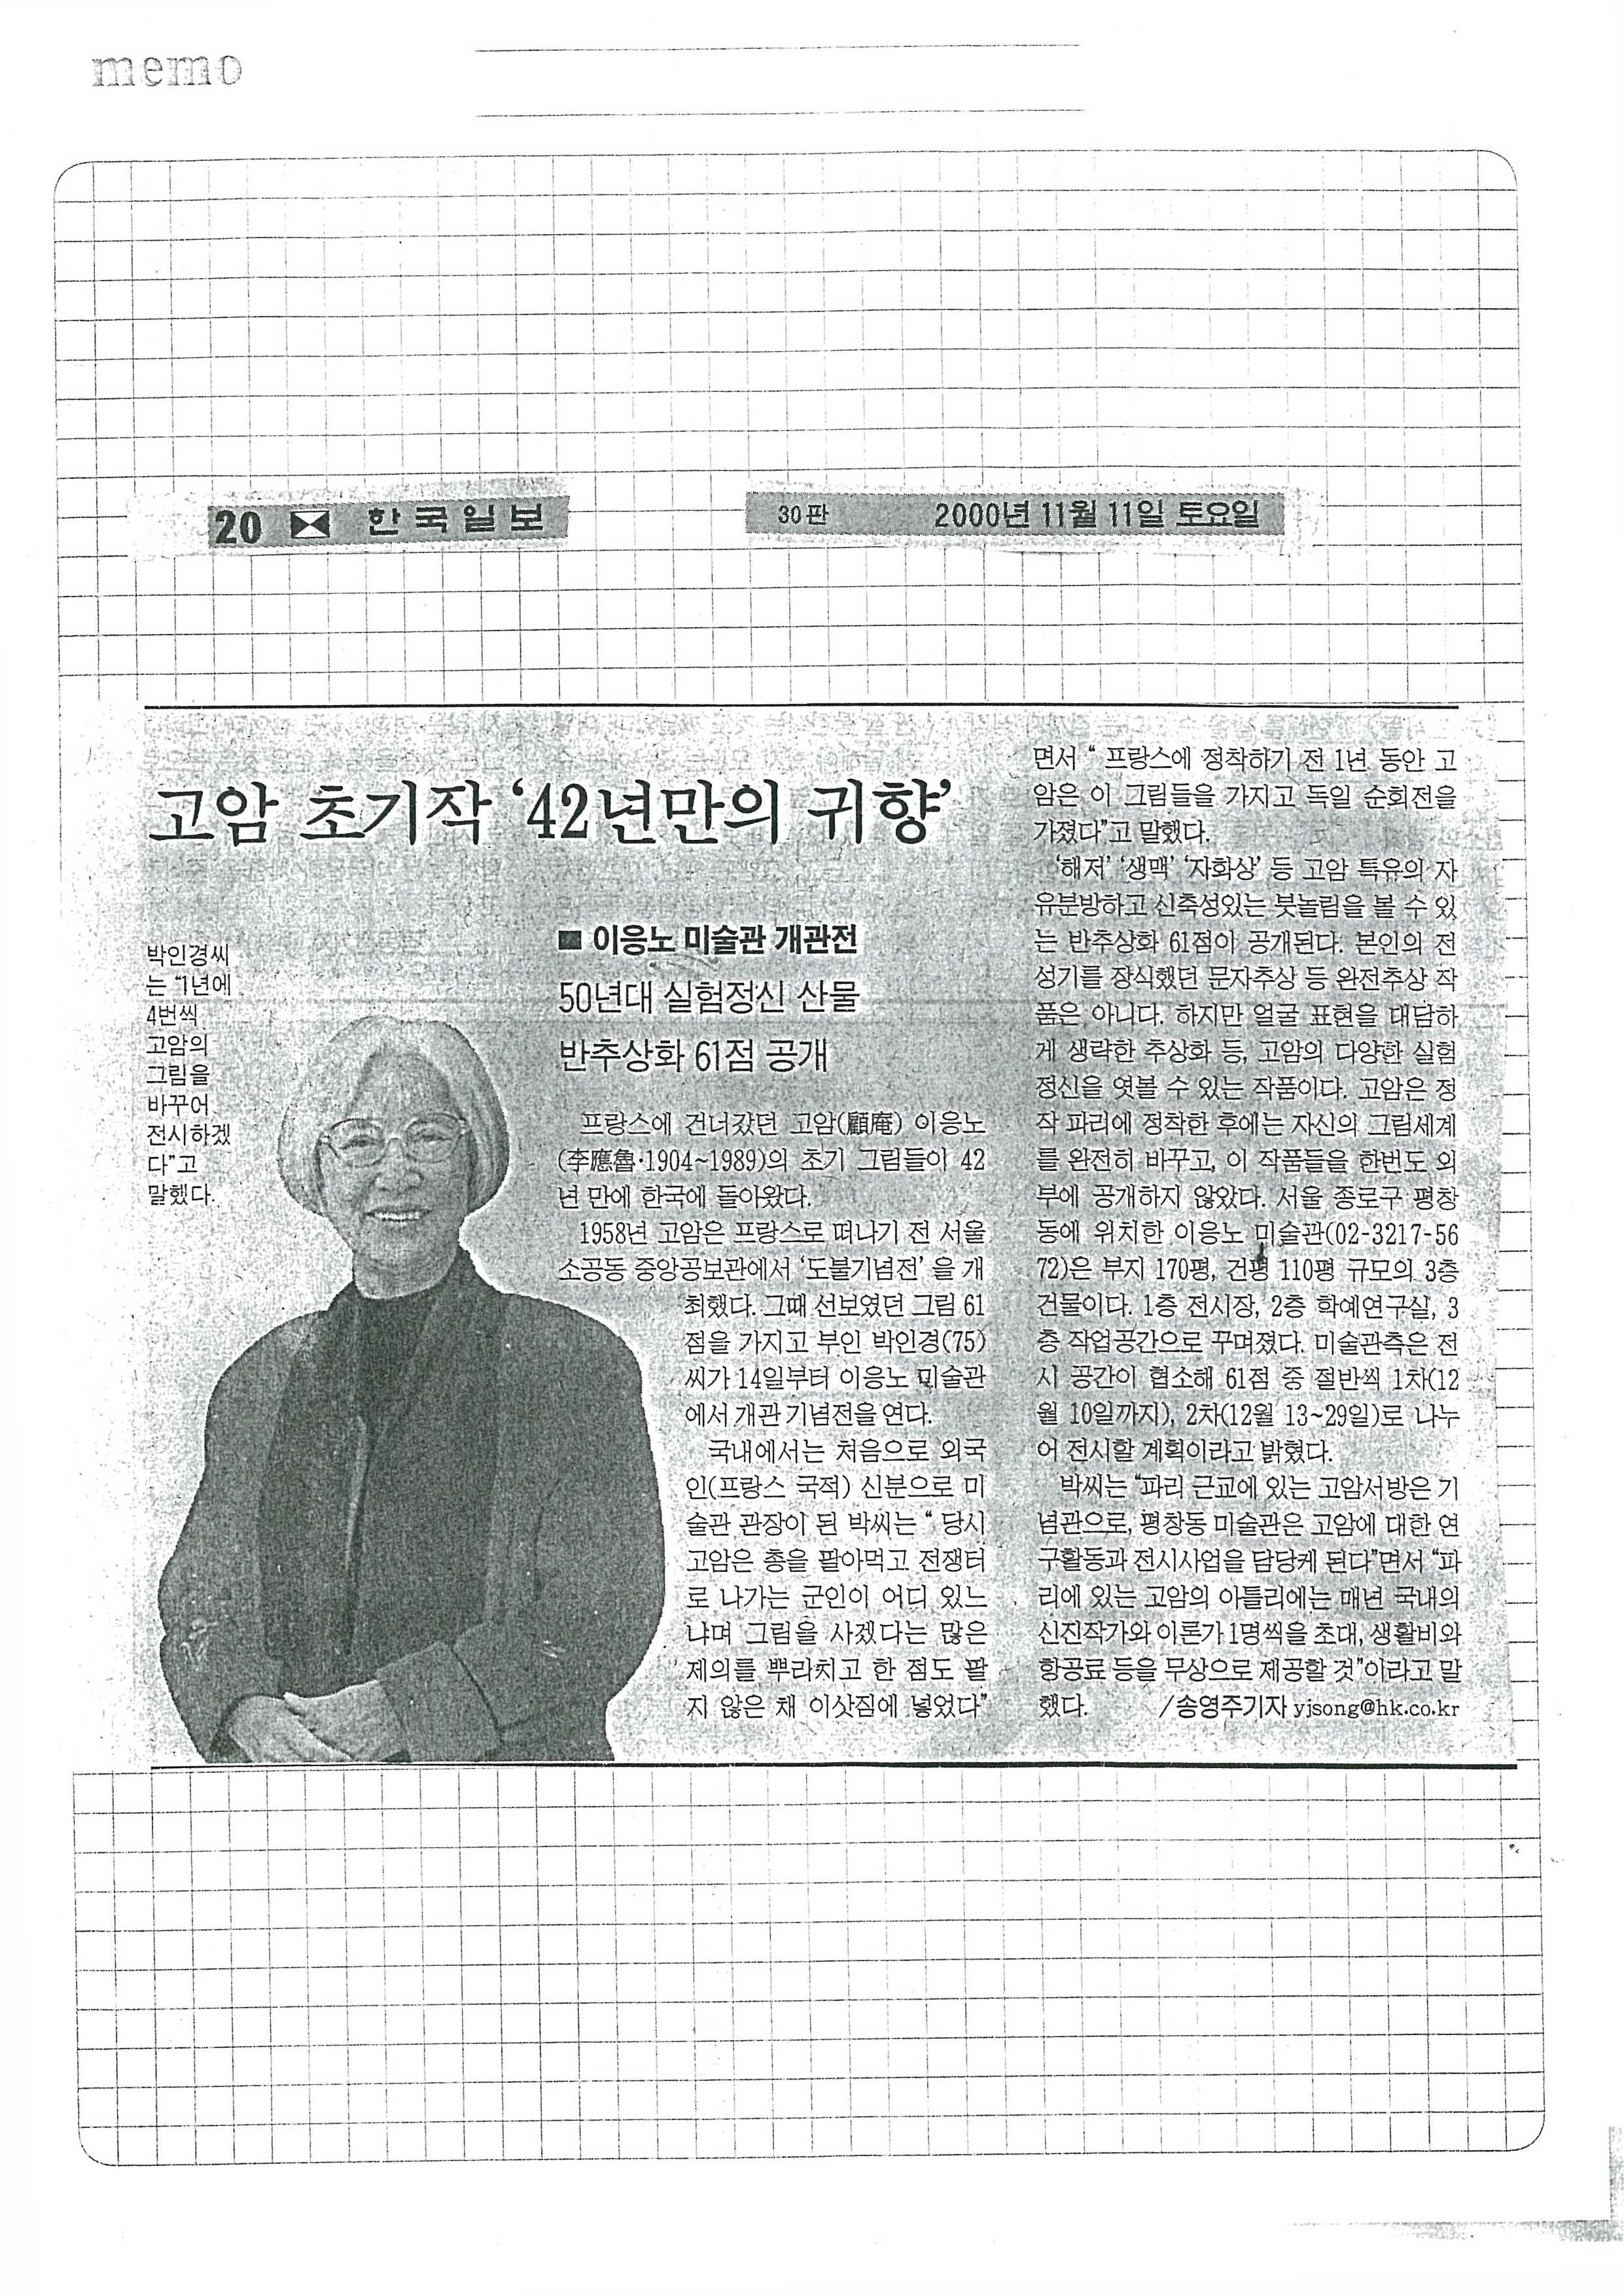 memo
20 한국일보
30판 2000년 11월 11일 토요일
고암 초기작 ‘42년만의 귀향’
박인경씨
는 “1년에
4번씩
고암의
그림을
바꾸어
전시하겠
다”고
말했다.
■ 이응노 미술관 개관전
50년대 실험정신 산물
반추상화 61점 공개
프랑스에 건너갔던 고암(顧庵) 이응노
(李應魯·1904~1989)의 초기 그림들이 42
년 만에 한국에 돌아왔다.
1958년 고암은 프랑스로 떠나기 전 서울
소공동 중앙공보관에서 ‘도불기념전’ 을 개
최했다. 그때 선보였던 그림 61
점을 가지고 부인 박인경(75)
씨가 14일부터 이응노 미술관
에서 개관 기념전을 연다.
국내에서는 처음으로 외국
인(프랑스 국적) 신분으로 미
술관 관장이 된 박씨는 “ 당시
고암은 총을 팔아먹고 전쟁터
로 나가는 군인이 어디 있느
냐며 그림을 사겠다는 많은
제의를 뿌리치고 한 점도 팔
지 않은 채 이삿짐에 넣었다”
면서 “ 프랑스에 정착하기 전 1년 동안 고
암은 이 그림들을 가지고 독일 순회전을
가졌다”고 말했다.
‘해저’ ‘생맥’ ‘자화상’ 등 고암 특유의 자
유분방하고 신축성있는 붓놀림을 볼 수 있
는 반추상화 61점이 공개된다. 본인의 전
성기를 장식했던 문자추상 등 완전추상 작
품은 아니다. 하지만 얼굴 표현을 대담하
게 생략한 추상화 등, 고암의 다양한 실험
정신을 엿볼 수 있는 작품이다. 고암은 정
작 파리에 정착한 후에는 자신의 그림세계
를 완전히 바꾸고, 이 작품들을 한번도 외
부에 공개하지 않았다. 서울 종로구 평창
동에 위치한 이응노 미술관(02-3217-56
72)은 부지 170평, 건평 110평 규모의 3층
건물이다. 1층 전시장, 2층 학예연구실, 3
층 작업공간으로 꾸며졌다. 미술관측은 전
시 공간이 협소해 61점 중 절반씩 1차(12
월 10일까지), 2차(12월 13~29일)로 나누
어 전시할 계획이라고 밝혔다.
박씨는 “파리 근교에 있는 고암서방은 기
념관으로, 평창동 미술관은 고암에 대한 연
구활동과 전시사업을 담당케 된다”면서 “파
리에 있는 고암의 아틀리에는 매년 국내의
신진작가와 이론가 1명씩을 초대, 생활비와
항공료 등을 무상으로 제공할 것”이라고 말
했다. /송영주기자 yjsong@hk.co.kr